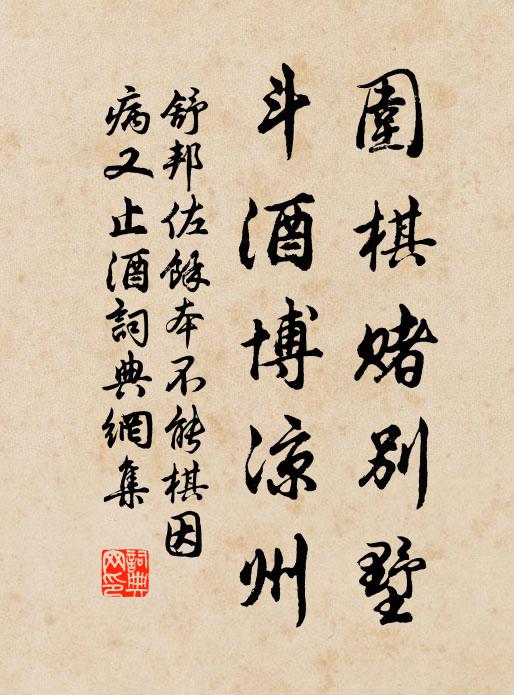 圍棋賭別墅
斗酒博涼州
舒邦佐餘本不能棋因
病又止酒詞典網集
詞典
网印